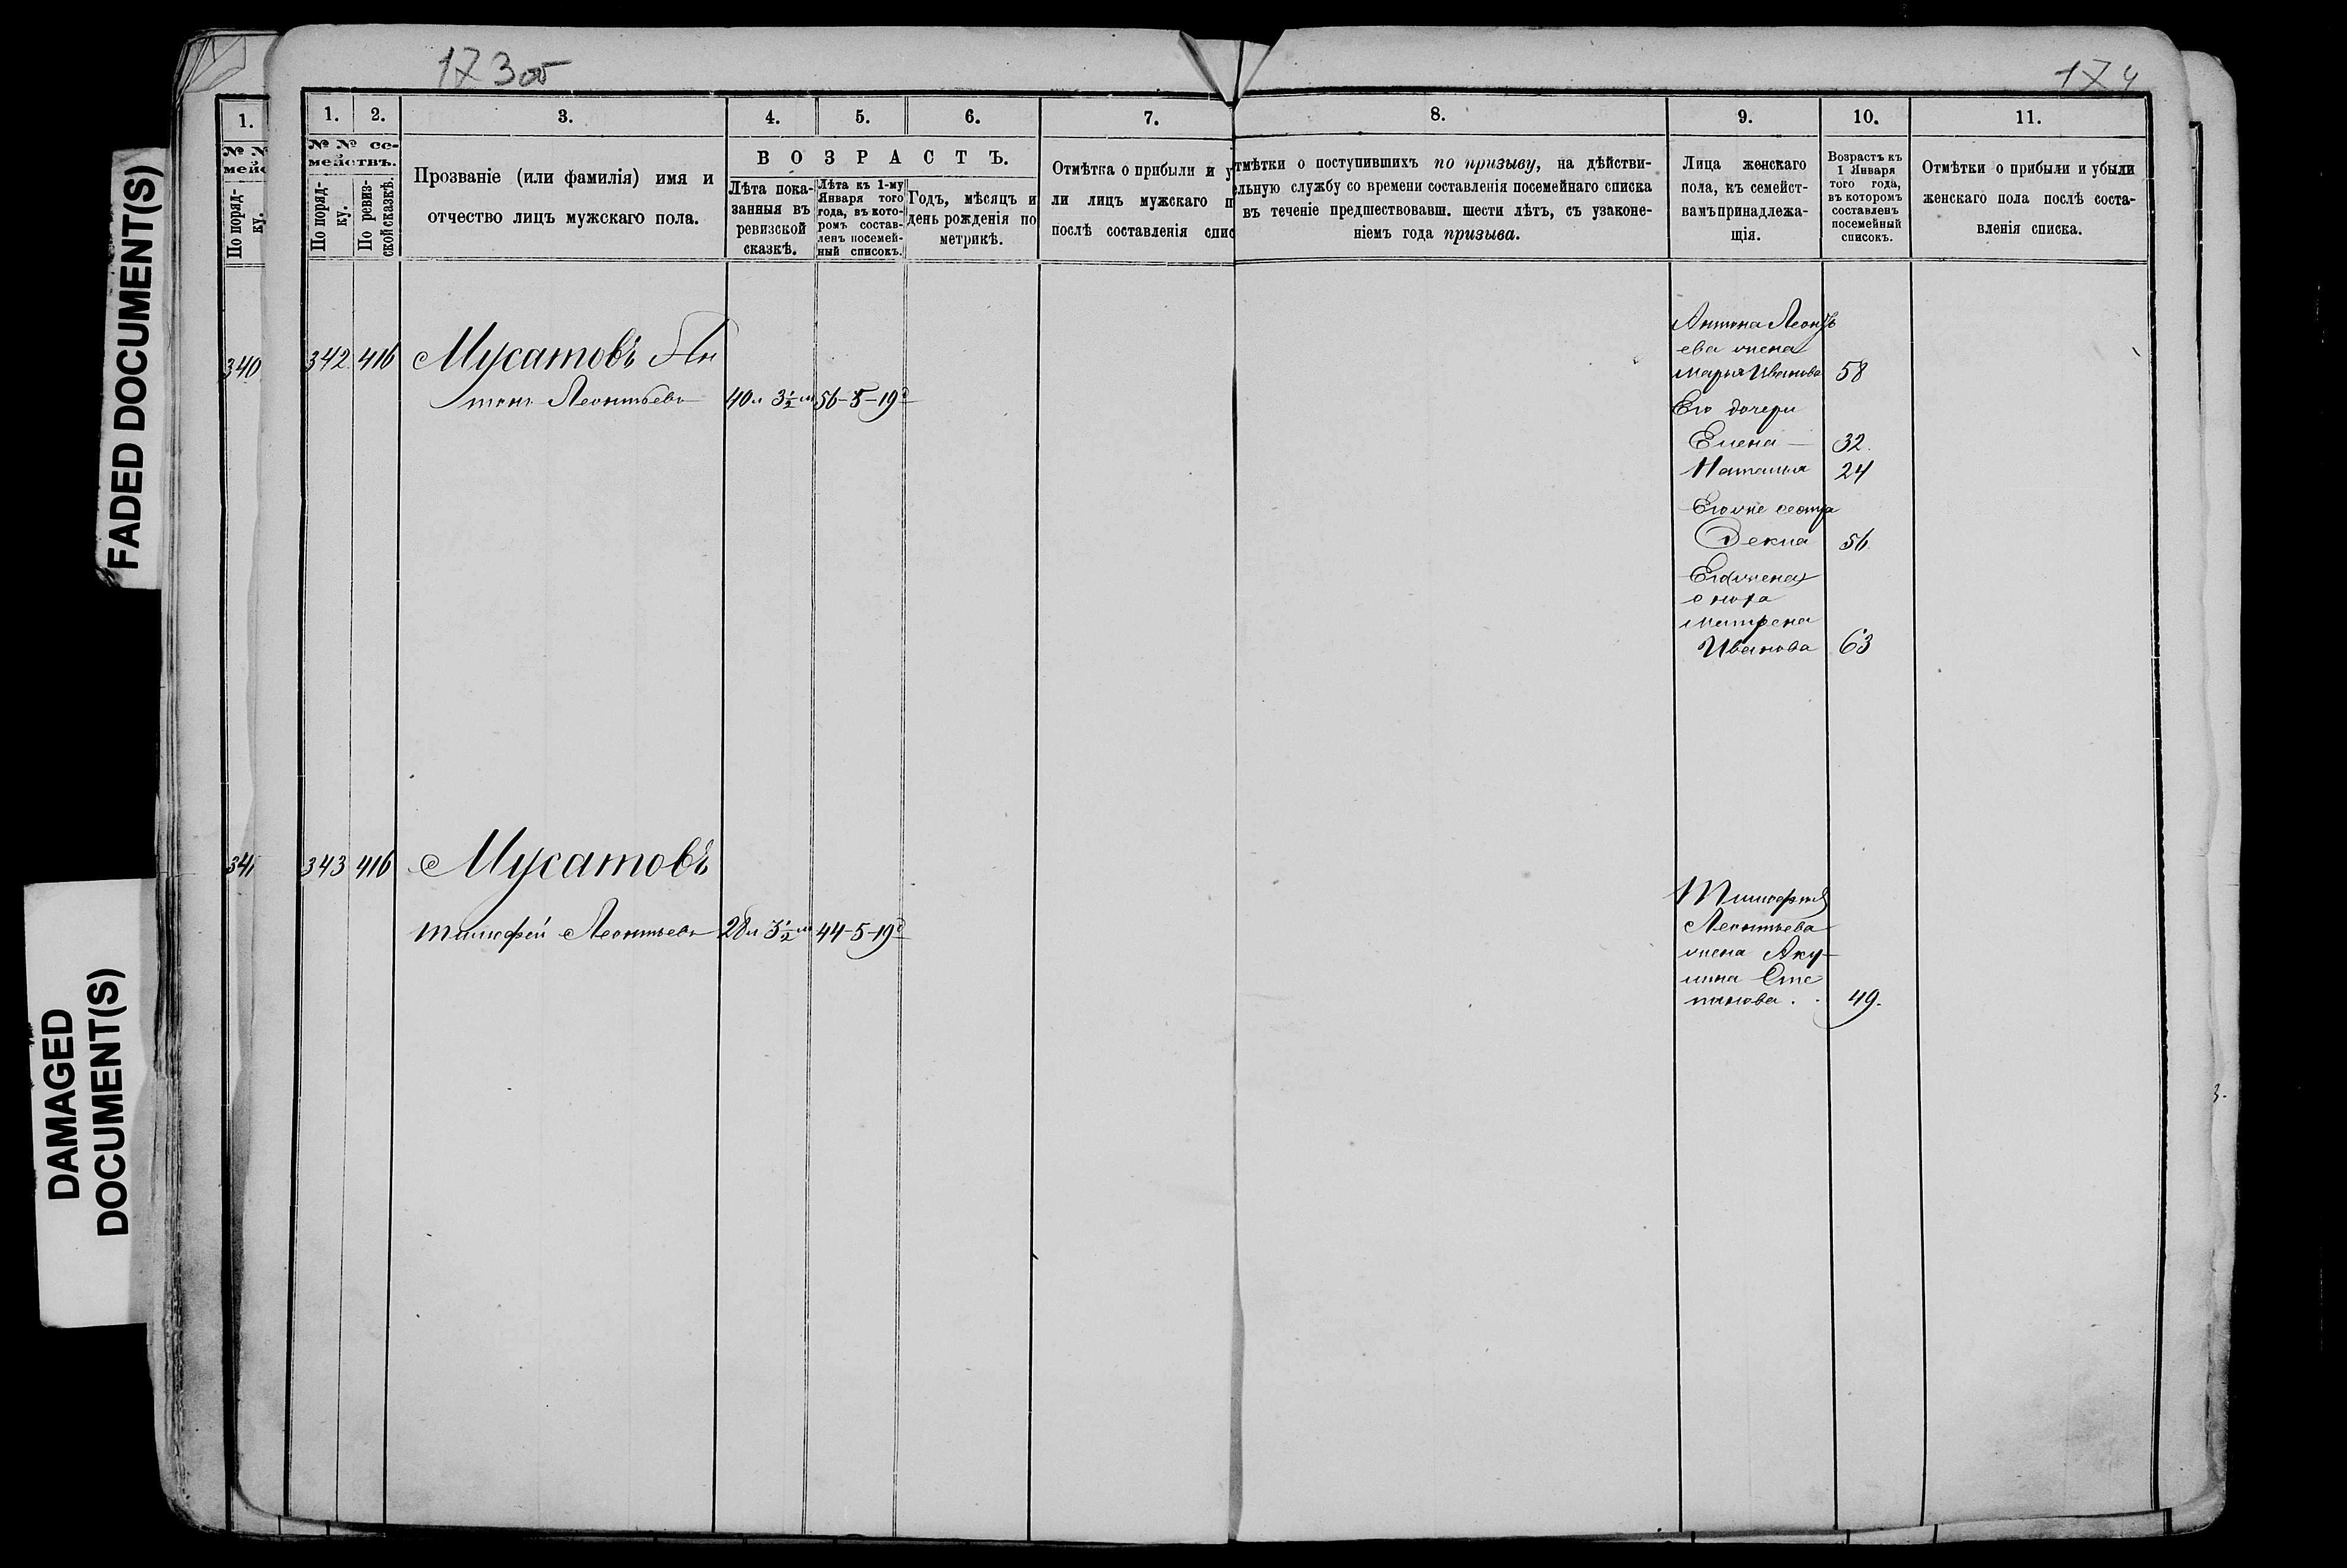 173об
174
FADED DOCUMENT(S)
DAMAGED
DOCUMENT(S)
1.
1.
2.
3.
4.
5.
6.
7.
8.
9.
10.
11.
№ №
№ № се-
мействъ.
По поряд-
ку.
По поряд-
ку.
По ревиз-
ской сказкѣ.
Прозваніе (или фамилія) имя и
отчество лицъ мужскаго пола.
ВОЗРАСТЪ.
Лѣта пока-
занныя въ
ревизской
сказкѣ.
Лѣта къ 1-му
Января того
года, въ кото-
ромъ состав-
ленъ посемей-
ный списокъ.
Годъ, мѣсяцъ и
день рожденія по
метрикѣ.
Отмѣтка о прибыли и у
ли лицъ мужскаго п
послѣ составленія спис
тмѣтки о поступившихъ по призыву, на дѣйстви-
ельную службу со времени составленія посемейнаго списка
въ теченіе предшествовавш. шести лѣтъ, съ узаконе-
ніемъ года призыва.
Лица женскаго
пола, къ семейст-
вамъ принадлежа-
щія.
Возрастъ къ
1 Января
того года,
въ которомъ
составленъ
посемейный
списокъ.
Отмѣтки о прибыли и убыли
женскаго пола послѣ соста-
вленія списка.
340
342 416 Мусатовъ Ан
тонъ Леонтьевъ 40л 3½м 56-5-19д
Антона Леонть
ева жена
Марья Иванова 58
Его дочери
Елена — 32.
Наталья 24
Его же сестра
Фекла 56
Его жена
сноха
Матрена
Иванова 63
341
343 416 Мусатовъ
Тимофей Леонтьевъ 28л 3½м 44-5-19д
Тимофея
Леонтьева
жена Аку-
лина Сте
панова. 49.